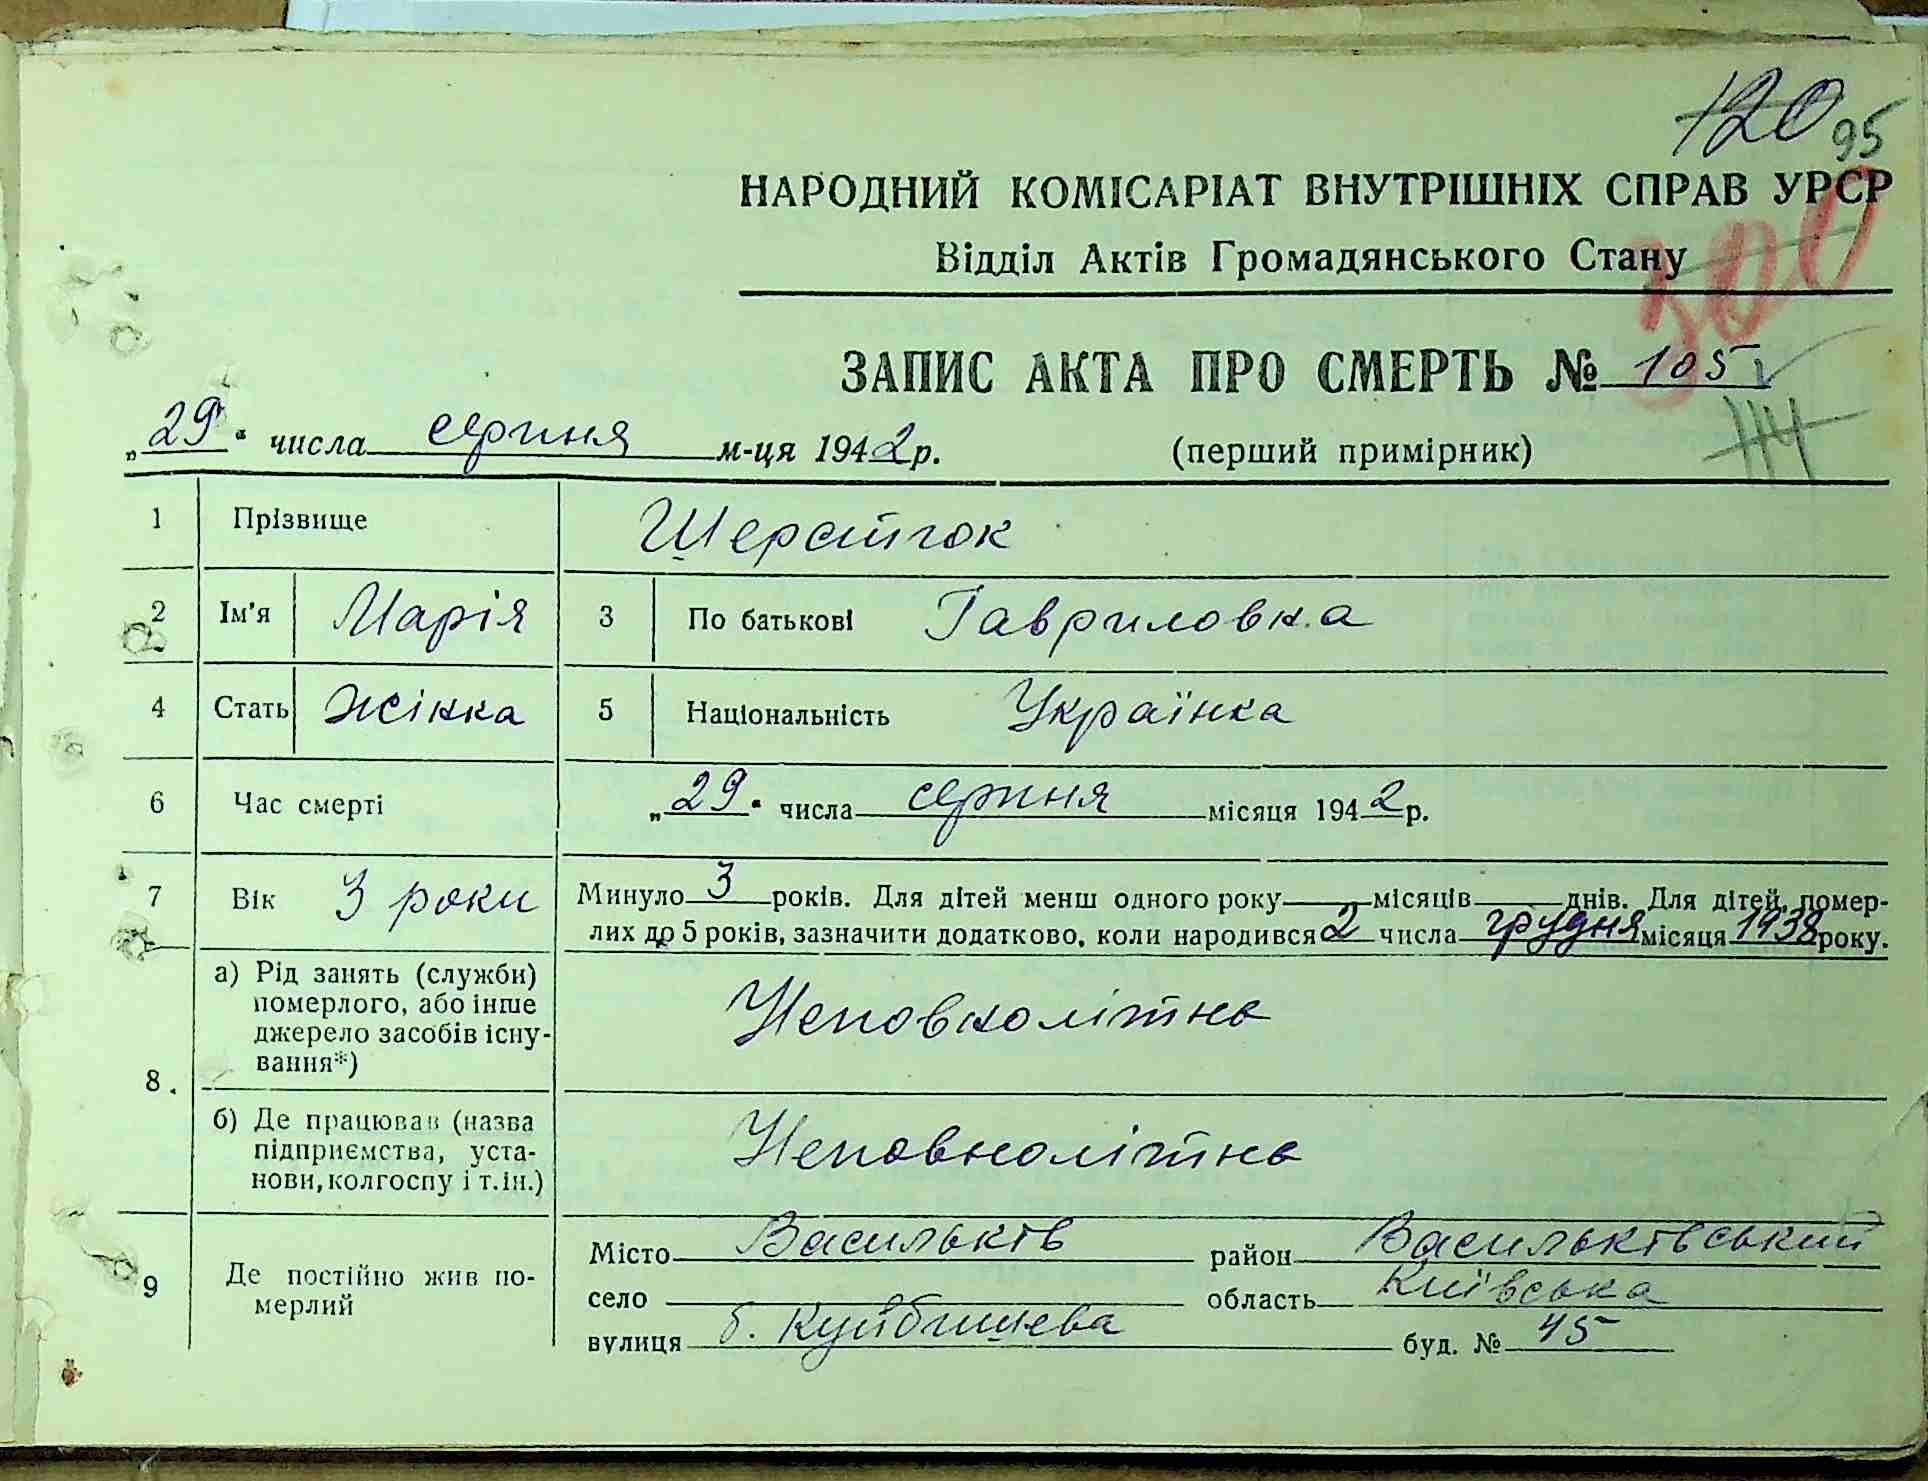 120 95
НАРОДНИЙ КОМІСАРІАТ ВНУТРІШНІХ СПРАВ УРСР
Відділ Актів Громадянського Стану
300
ЗАПИС АКТА ПРО СМЕРТЬ № 105
„29“ числа серпня м-ця 1942 р. (перший примірник)
114
1 Прізвище Шерстюк
2 Ім'я Марія 3 По батькові Гавриловна
4 Стать жінка 5 Національність Українка
6 Час смерті „29“ числа серпня місяця 1942 р.
7 Вік 3 роки Минуло 3 років. Для дітей менш одного року місяців днів. Для дітей, помер-
лих до 5 років, зазначити додатково, коли народився 2 числа грудня місяця 1938 року.
8. а) Рід занять (служби)
померлого, або інше
джерело засобів існу-
вання*)
Неповнолітня
б) Де працював (назва
підприємства, уста-
нови, колгоспу і т.ін.)
Неповнолітня
9 Де постійно жив по-
мерлий
Місто Васильків район Васильківський
село область Київська
вулиця б. Куйбишева буд. № 45